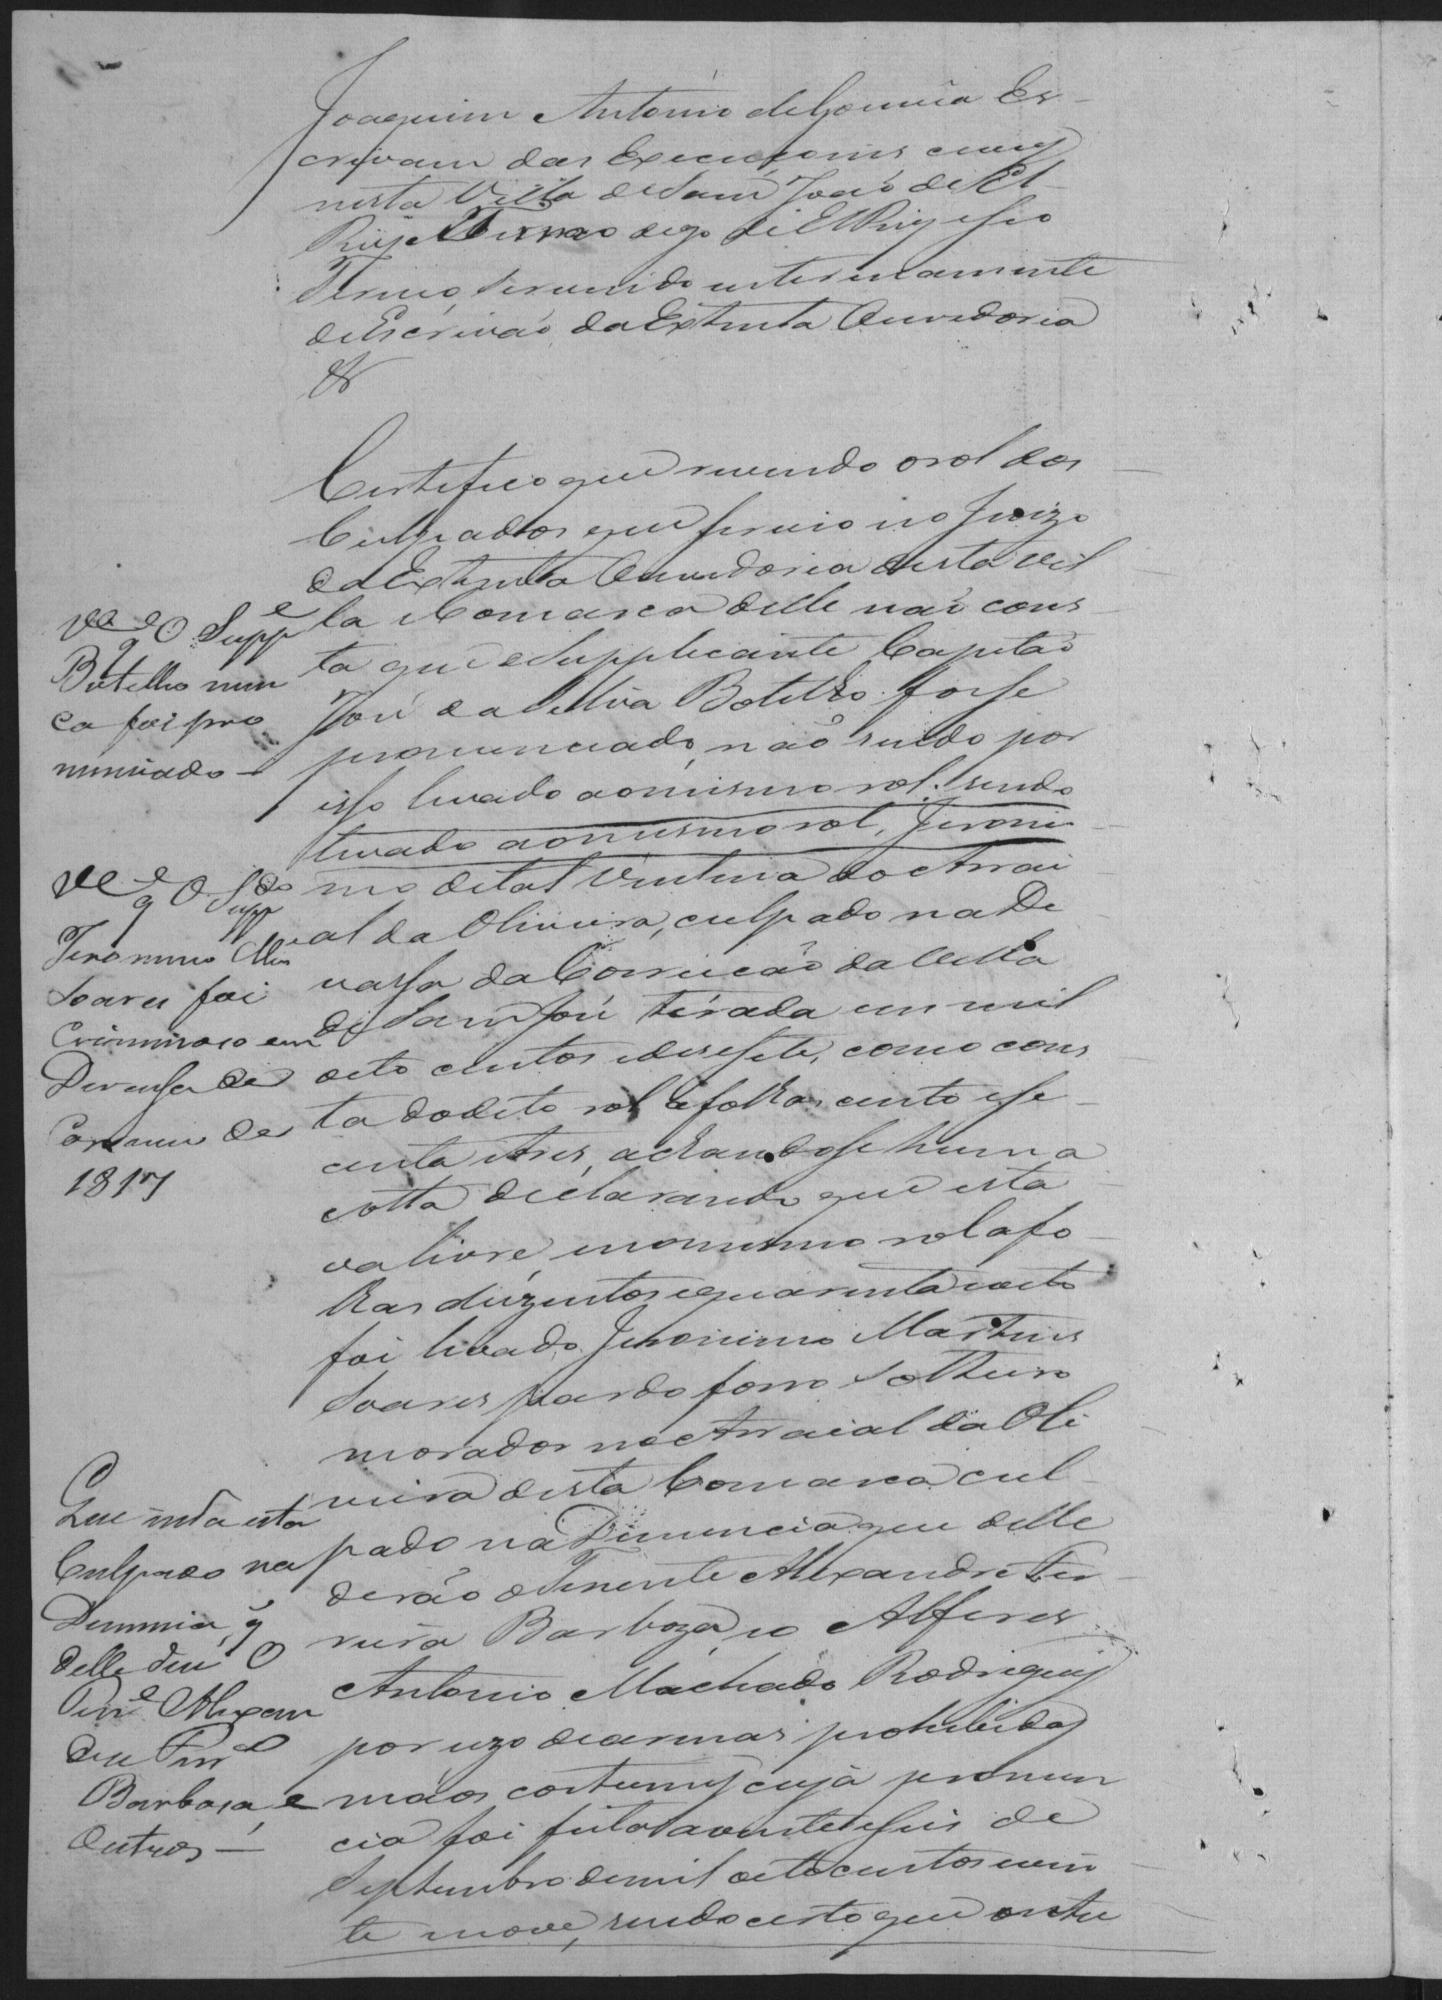 Joaquim Antonio de Gouvêa Es-
crivam das Execuçoens civeis
nesta Villa de Sam João de El
Rey e Termo digo de El Rey e seo
Termo, servindo interinamente
de Escrivão da Extinta Ouvedoria
&
Certefico que revendo o rol dos
Culpados que servio no Juizo
da Extinta Ouvedoria desta Vil
la e Comarca delle não cons
ta que o Supplicante Capitão
José da Silva Botelho fosse
pronunciado, não sendo por
isso levado ao mesmo rol: sendo
levado ao mesmo rol, Jeroni
mo de tal Ventura do Arrai
al da Oliveira, culpado na De
vassa da Correição da Villa
de Sam José tirada em mil
oito centos e desesete, como cons
ta do dito rol a folhas cento e se
centa e tres, achando se huma
cotta declarando que esta
va livre, e no mesmo rol a fo
lhas duzentos e quarenta e oito
foi levado Jeronimo Martins
Soares pardo forro solteiro
morador no Arraial da Oli
veira desta Comarca cul
pado na Denuncia que delle
derão o Tenente Alexandre Fer
reira Barboza, e o Alferes
Antonio Machado Rodrigues
por uzo de armas prohibidas
e máos costumes cuja pronun
cia foi feita a vinte e seis de
Septembro de mil oito centos e vin
te nove, sendo certo que o setu
Ve q O Suppe
Botelho nun
ca foi pro
nunciado —
Ve q O Suppdo
Jeronimo Miz
Soares foi
Criminoso em
Devassa de
Correiam de
1817
Que inda esta
Culpado na
Denuncia, q
delle deu O
Tene Alexan
dre Ferra
Barbosa, e
Outros —